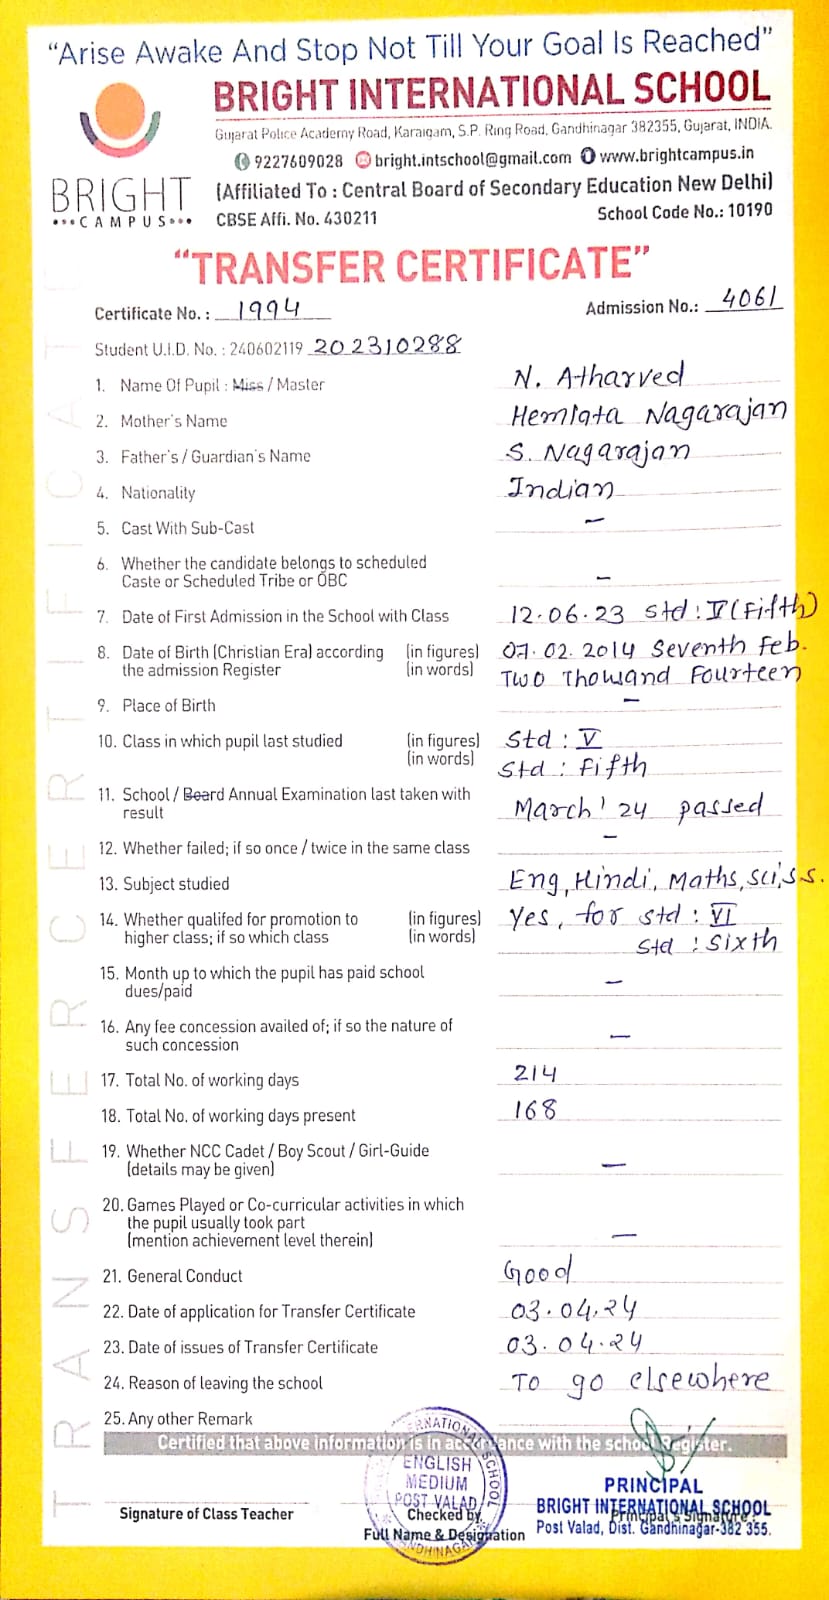 "Arise Awake And Stop Not Till Your Goal Is Reached"
BRIGHT INTERNATIONAL SCHOOL
Gujarat Police Academy Road, Karaigam, S.P. Ring Road, Gandhinagar 382355, Gujarat, INDIA.
9227609028 bright.intschool@gmail.com www.brightcampus.in
BRIGHT
CAMPUS
(Affiliated To : Central Board of Secondary Education New Delhi)
CBSE Affi. No. 430211 School Code No.: 10190
"TRANSFER CERTIFICATE"
Certificate No. : 1994 Admission No.: 4061
Student U.I.D. No. : 240602119 202310288
1. Name Of Pupil : Miss / Master N. Atharved
2. Mother's Name Hemlata Nagarajan
3. Father's / Guardian's Name S. Nagarajan
4. Nationality Indian
5. Cast With Sub-Cast –
6. Whether the candidate belongs to scheduled
Caste or Scheduled Tribe or OBC –
7. Date of First Admission in the School with Class 12.06.23 Std : V (Fifth)
8. Date of Birth (Christian Era) according (in figures) 07.02.2014 Seventh Feb.
the admission Register (in words) Two Thousand Fourteen
9. Place of Birth –
10. Class in which pupil last studied (in figures) Std : V
(in words) Std : Fifth
11. School / Board Annual Examination last taken with
result March' 24 passed
12. Whether failed; if so once / twice in the same class –
13. Subject studied Eng, Hindi, Maths, Sci, S.S.
14. Whether qualifed for promotion to (in figures) Yes, for Std : VI
higher class; if so which class (in words) Std : Sixth
15. Month up to which the pupil has paid school
dues/paid –
16. Any fee concession availed of; if so the nature of
such concession –
17. Total No. of working days 214
18. Total No. of working days present 168
19. Whether NCC Cadet / Boy Scout / Girl-Guide
(details may be given) –
20. Games Played or Co-curricular activities in which
the pupil usually took part
(mention achievement level therein) –
21. General Conduct Good
22. Date of application for Transfer Certificate 03.04.24
23. Date of issues of Transfer Certificate 03.04.24
24. Reason of leaving the school To go elsewhere
25. Any other Remark
Certified that above information is in accordance with the school Register.
ENGLISH
MEDIUM
POST VALAD
Signature of Class Teacher
Checked by
Full Name & Designation
PRINCIPAL
BRIGHT INTERNATIONAL SCHOOL
Principal's Signature
Post Valad, Dist. Gandhinagar-382 355.
TRANSFER CERTIFICATE